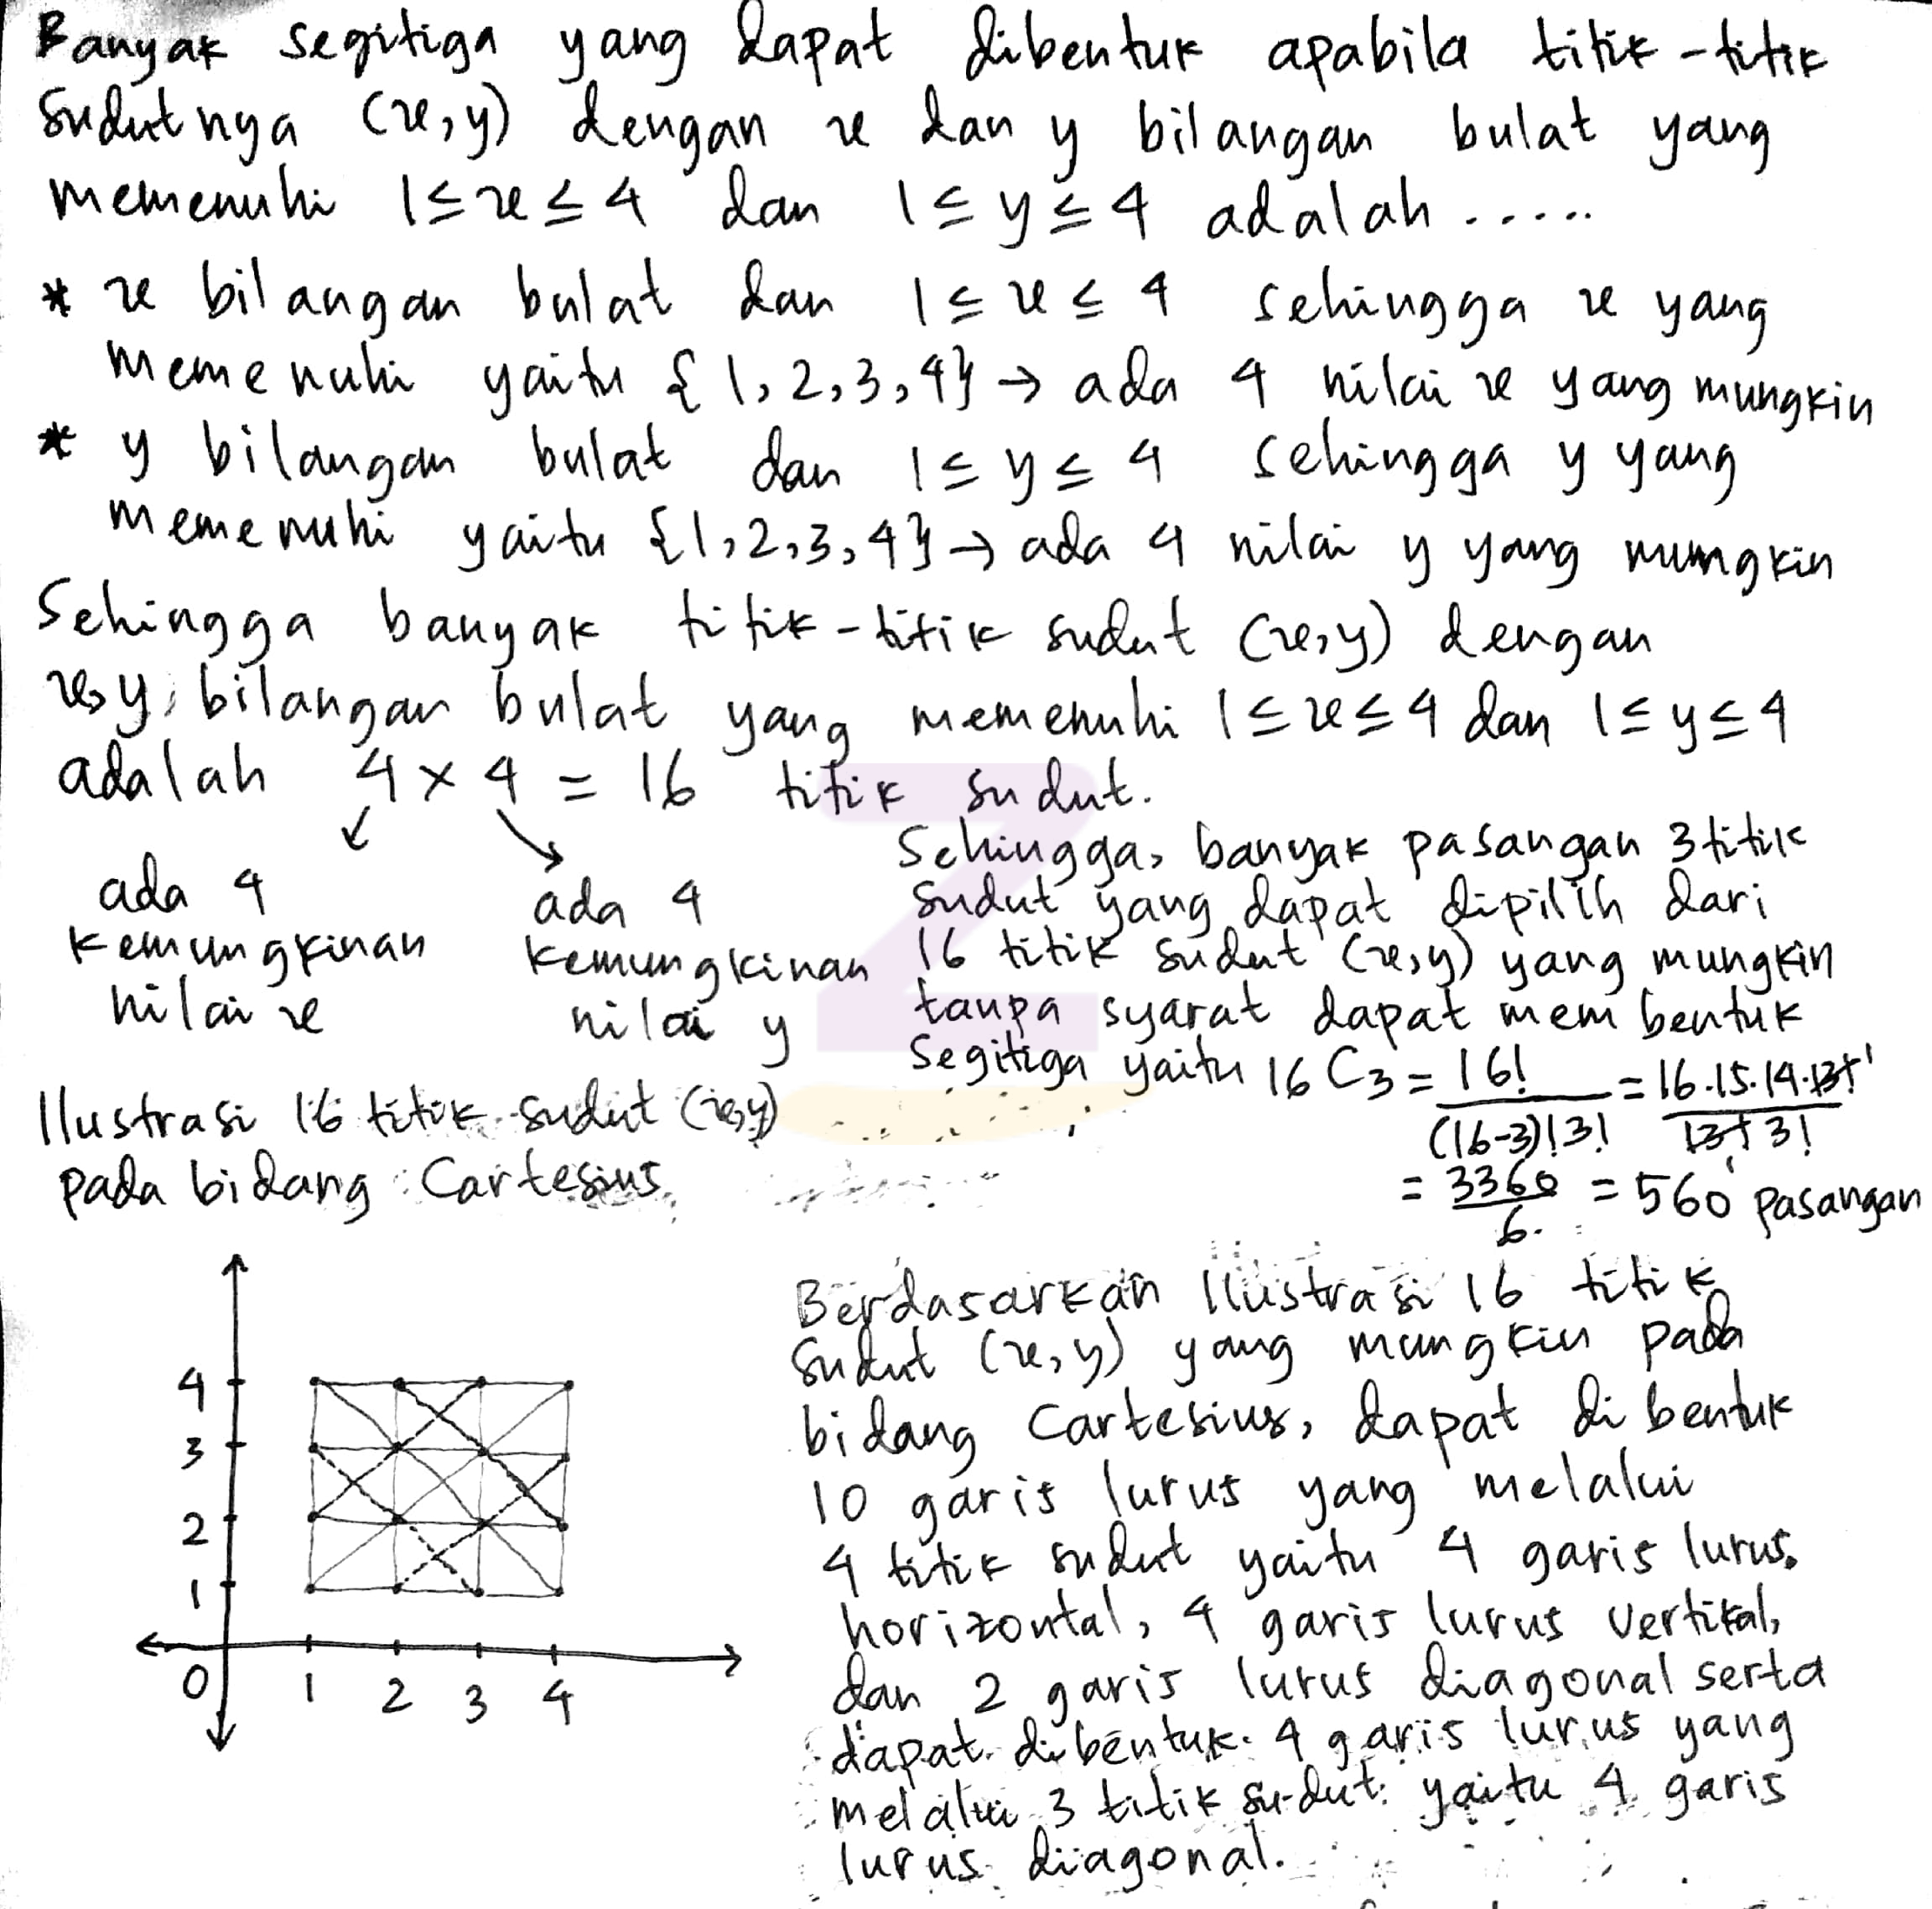 Banyak segitiga yang dapat dibentuk apabila titik-titik
sudutnya (x,y) dengan x dan y bilangan bulat yang
memenuhi 1 ≤ x ≤ 4 dan 1 ≤ y ≤ 4 adalah .....
* x bilangan bulat dan 1 ≤ x ≤ 4 sehingga x yang
memenuhi yaitu {1,2,3,4} → ada 4 nilai x yang mungkin
* y bilangan bulat dan 1 ≤ y ≤ 4 sehingga y yang
memenuhi yaitu {1,2,3,4} → ada 4 nilai y yang mungkin
Sehingga banyak titik-titik sudut (x,y) dengan
x,y bilangan bulat yang memenuhi 1 ≤ x ≤ 4 dan 1 ≤ y ≤ 4
adalah 4 × 4 = 16 titik sudut.
ada 4
kemungkinan
nilai x
ada 4
kemungkinan
nilai y
Sehingga, banyak pasangan 3 titik
sudut yang dapat dipilih dari
16 titik sudut (x,y) yang mungkin
tanpa syarat dapat membentuk
segitiga yaitu 16 C 3 = 16! / (16-3)! 3! = 16.15.14.13! / 13! 3!
= 3360 / 6 = 560 pasangan
Ilustrasi 16 titik sudut (x,y)
pada bidang Cartesius
4
3
2
1
0 1 2 3 4
Berdasarkan Ilustrasi 16 titik
sudut (x,y) yang mungkin pada
bidang Cartesius, dapat dibentuk
10 garis lurus yang melalui
4 titik sudut yaitu 4 garis lurus
horizontal, 4 garis lurus vertikal,
dan 2 garis lurus diagonal serta
dapat dibentuk 4 garis lurus yang
melalui 3 titik sudut yaitu 4 garis
lurus diagonal.
Z